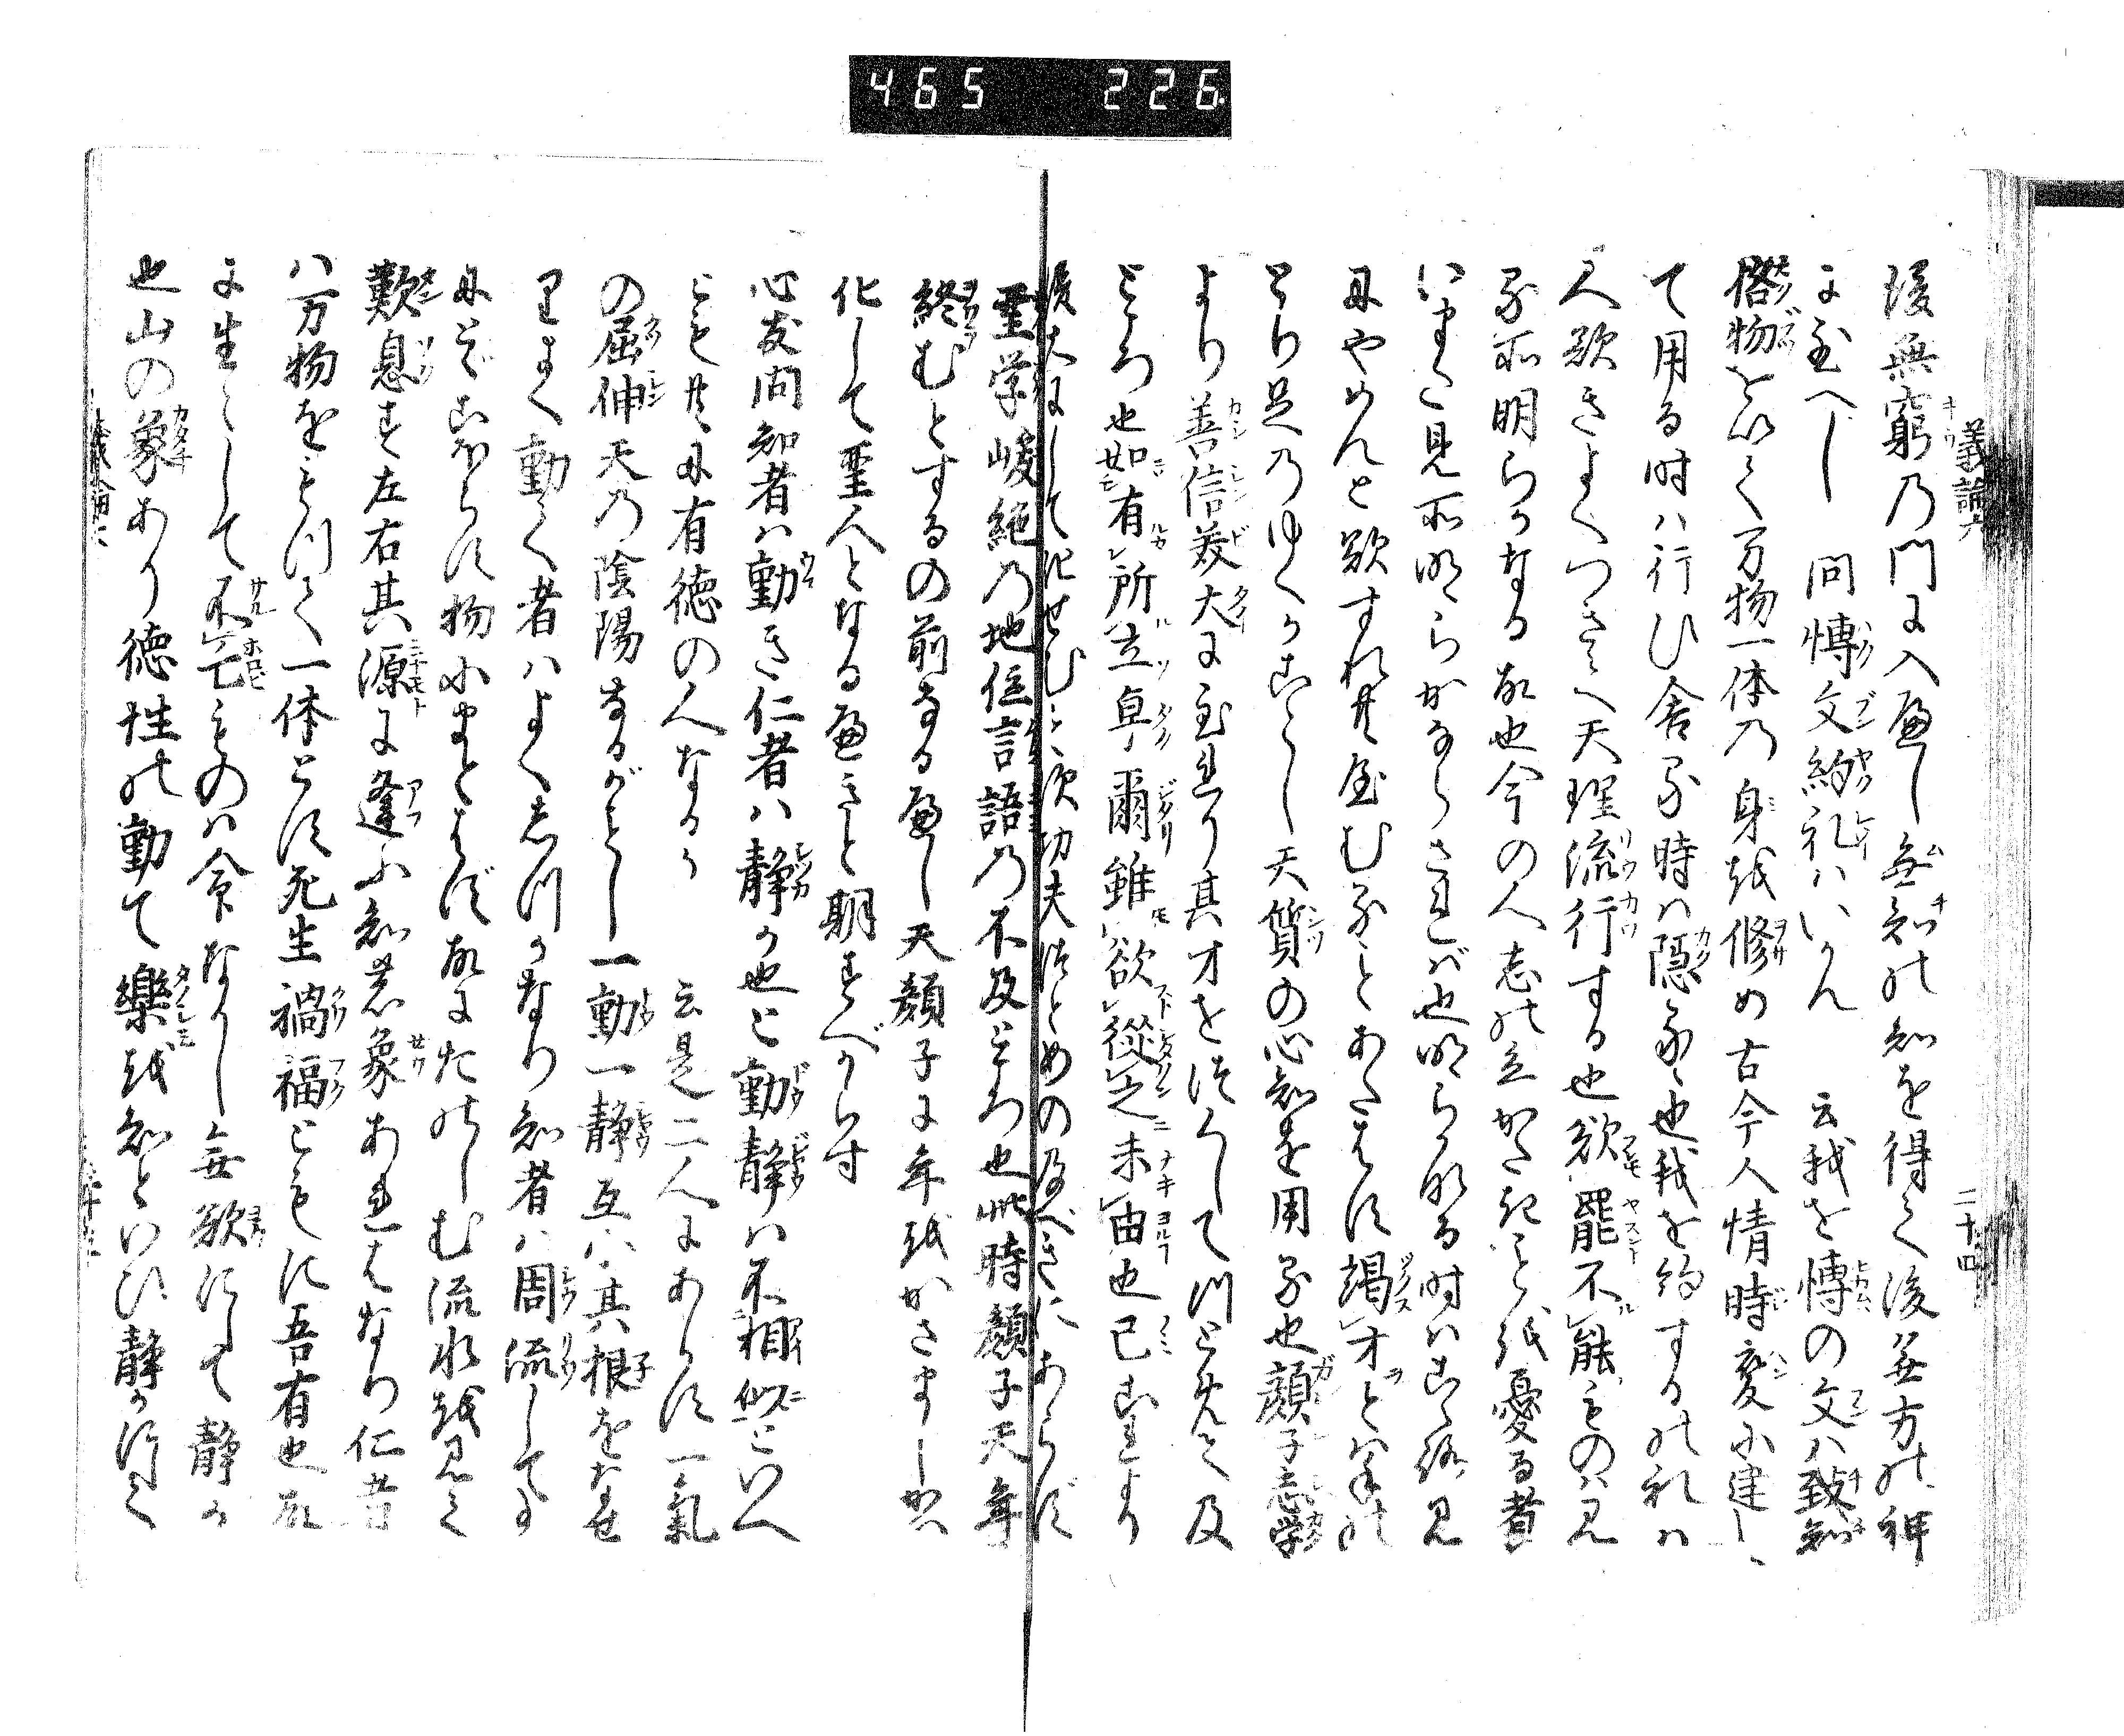 465 226
議論六
二十四
後無窮乃門に入べし無知の知を得て後無方の神
に至べし 問博文約礼ハいかん 云我を博の文ハ致知
格物を以て万物一体乃身を修め古今人情時変に達し
て用る時ハ行ひ舎る時ハ隠る也我を約するの礼ハ
人欲きよくつきて天理流行する也欲罷不能ものハ見
る所明らかなる故也今の人志の立かたきことを憂る者
いまた見所明らかならされバ也明らかなる時ハこゝろ見
にやめんと欲すれ共止むことあたはす竭才とハ手の
とり足乃ゆくかことし天質の心知を用る也顔子志学
より善信美大に至れり其才をつくして
ところ也如有所立卓爾雖欲従之未由也已これより
後大にして化せむと次功夫つとめの及べきにあらず
聖学峻絶乃地位言語乃不及ところ也此時顔子天年
終むとするの前なるべし天顔子に年をかさましかハ
化して聖人となるべきこと期すべからす
心友問知者ハ動き仁者ハ静か也と動静ハ不相似といへ
とも共に有徳の人なるか 云是二人にあらす一気
の屈伸天乃陰陽なるがことし一動一静互ハ其根をなせ
りよく動く者ハよくしつかなり知者ハ周流してよ
にとゞこほらす物にまとはず故にたのしむ流水を見て
歎息す左右其源に逢ふ知者象あれはなり仁者
ハ万物をもつて一体とす死生禍福ともに吾有也故
に生々して不亡ものハ命なりし無欲にして静か
也山の象あり徳性の動て楽を知といひ静かにて